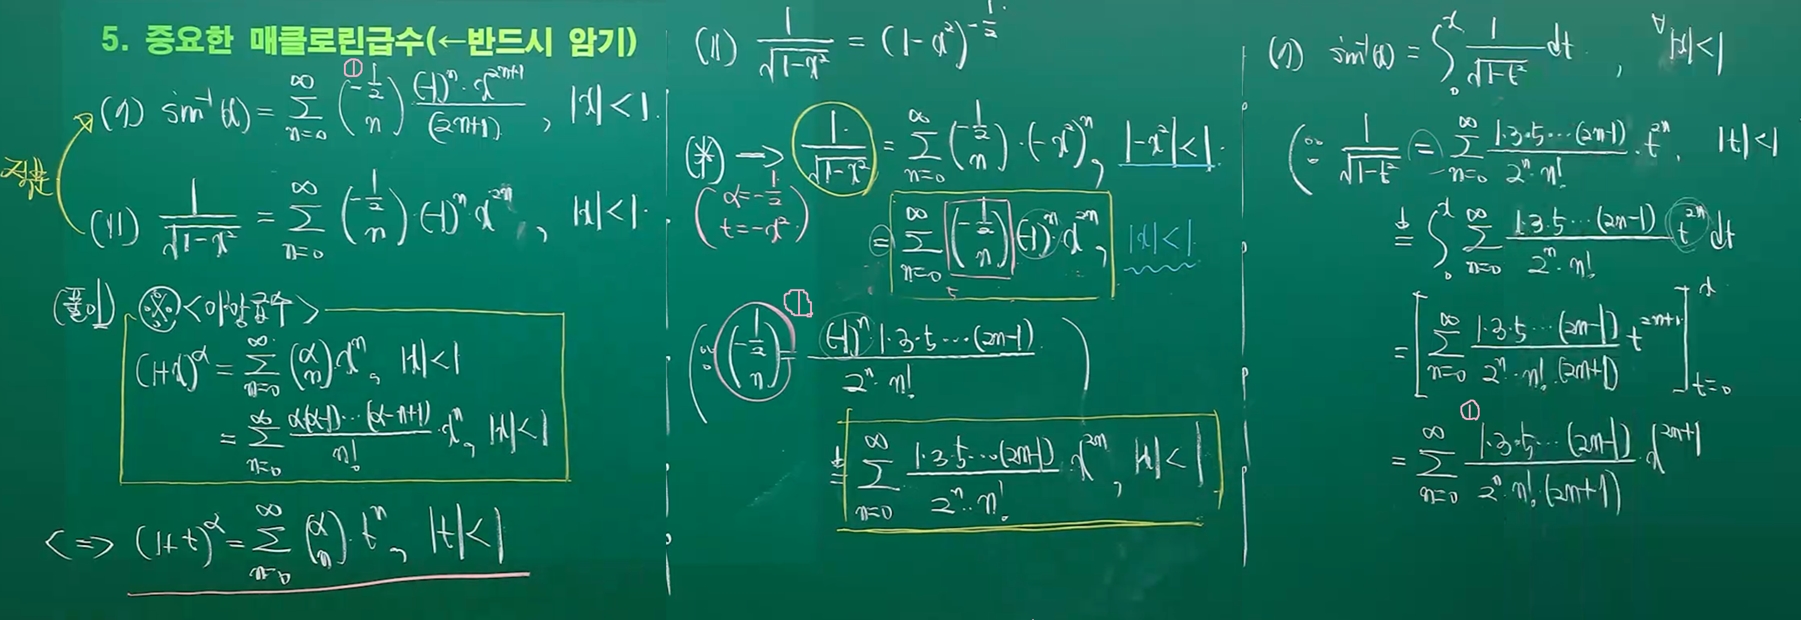 5. 중요한 매클로린급수(←반드시 암기)
(ⅰ) sin⁻¹(x) = ∑_{n=0}^{∞} (-1/2 n)① (-1)ⁿ·x²ⁿ⁺¹/(2n+1), |x|<1.
적분
(ⅱ) 1/√(1-x²) = ∑_{n=0}^{∞} (-1/2 n)·(-1)ⁿ x²ⁿ, |x|<1.
(풀이) ※ <이항급수>
(1+x)^α = ∑_{n=0}^{∞} (α n) xⁿ, |x|<1
= ∑_{n=0}^{∞} α(α-1)···(α-n+1)/n! ·xⁿ, |x|<1
<=> (1+t)^α = ∑_{n=0}^{∞} (α n)·tⁿ, |t|<1
(ⅱ) 1/√(1-x²) = (1-x²)^{-1/2}
(*) → 1/√(1-x²) = ∑_{n=0}^{∞} (-1/2 n)·(-x²)ⁿ, |-x²|<1.
(α=-1/2
t=-x²)
= ∑_{n=0}^{∞} (-1/2 n) (-1)ⁿ·x²ⁿ, |x|<1
①
(∵ (-1/2 n) = (-1)ⁿ 1·3·5···(2n-1)/2ⁿ·n! )
= ∑_{n=0}^{∞} 1·3·5···(2n-1)/2ⁿ·n! x²ⁿ, |x|<1
(ⅰ) sin⁻¹(x) = ∫₀ˣ 1/√(1-t²) dt, ∀|x|<1
(∵ 1/√(1-t²) = ∑_{n=0}^{∞} 1·3·5···(2n-1)/2ⁿ·n! ·t²ⁿ, |t|<1
= ∫₀ˣ ∑_{n=0}^{∞} 1·3·5···(2n-1)/2ⁿ·n! t²ⁿ dt
= [∑_{n=0}^{∞} 1·3·5···(2n-1)/2ⁿ·n!·(2n+1) t²ⁿ⁺¹]_{t=0}^{x}
①
= ∑_{n=0}^{∞} 1·3·5···(2n-1)/2ⁿ·n!·(2n+1) ·x²ⁿ⁺¹